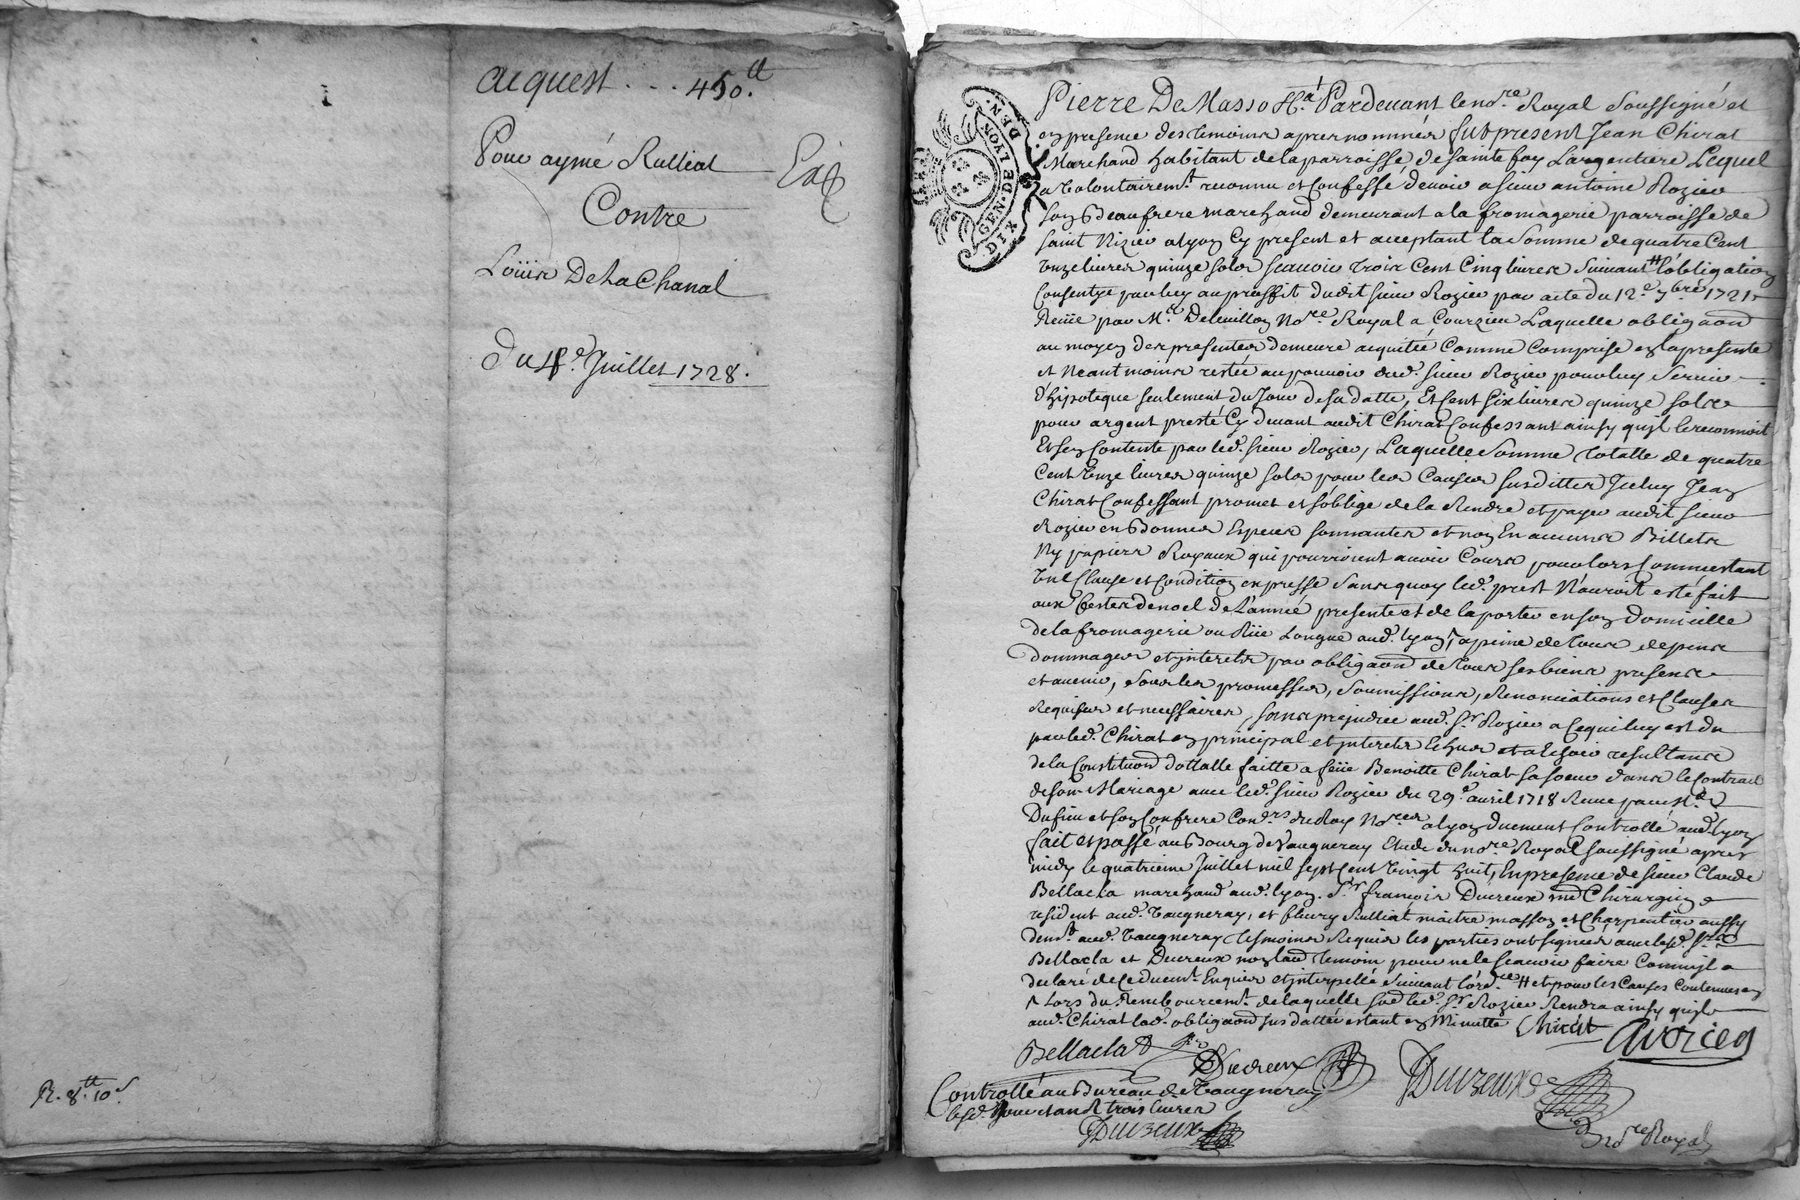 acquest . . . 450.tt
Pour aymé Rulliat
Contre
Loüis De La Chanal
Du 4e. Juillet 1728.
R. 8.tt 10s.
GEN. DE LYON
DIX DEN.
Pardevant le no.re Royal soussigné et
en presence des temoins apres nommés fut present Jean Chirat
Marchand habitant de la parroisse de sainte foy Largentiere Lequel
a volontairem.t reconnu et Confessé devoir a sieur antoine Rozier
son Beaufrere marchand demeurant a la fromagerie parroisse de
saint Nizier a lyon Cy present et acceptant la somme de quatre Cent
onze livres quinze sols scauoir trois Cent Cinq livres suivant l'obligation
Consentye par luy au proffit dudit sieur Rozier par acte du 12.e 7bre 1721
Receüe par M.e No.re Royal a Courzieu Laquelle obligaon
au moyen des presentes demeure acquitée Comme Comprise en la presente
et Neantmoins restée au pouvoir dud. sieur Rozier pour luy servir
d'hipoteque seulement du Jour de sa datte, Et Cent six livres quinze sols
pour argent presté Cy devant audit Chirat Confessant ainsy qu'il le reconnoit
Et s'en Contente par led. sieur Rozier, Laquelle somme totalle de quatre
Cent onze livres quinze sols pour les Causes susdittes Iceluy Jean
Chirat Confessant promet et s'oblige de la Rendre et payer audit sieur
Rozier en Bonnes Especes sonnantes et non En aucuns Billets
Ny papiers Royaux qui pourroient avoir Cours pour lors Comme estant
une Clause et Condition expresse sans quoy led. prest N'auroit esté fait
aux festes de noel de L'année presente et de la porter en son Domicille
de la fromagerie ou Rüe Longue aud. lyon, a peine de tous depens
dommages et interets par obligaon de tous ses biens presens
et avenir, sous les promesses, soumissions, Renonciations et Clauses
Requises et necessaires, sans prejudice aud. s.r Rozier a Ce qui luy est du
par led. Chirat en principal et interets Echus et a Echoir resultans
de la Constituon dottalle faitte a feüe Benoitte Chirat sa soeur dans le Contract
de son Mariage avec led. sieur Rozier du 29.e avril 1718 Receu par
et son Confrere Con.rs du Roy No.res a lyon duement Controllé aud. lyon
fait et passé au Bourg de Vaugneray Etude du no.re Royal soussigné apres
midy le quatrieme Juillet mil sept Cent vingt huit, En presence de sieur Claude
Bellacla marchand aud. lyon. S.r françois Duvreux m.e Chirurgien
resident aud. Vaugneray, et fleury Rulliat maitre masson et Charpentier aussy
dem.t aud. Vaugneray temoins Requis les parties ont signé avec lesd. s.rs
Bellacla et Duvreux non led. temoin pour ne le scavoir faire Comme il a
declaré de Ce duem.t Enquis et interpellé suivant l'ord.ce et pour les Causes Contenues en
lors du Remboursem.t de laquelle led. s.r Rozier Rendra ainsy qu'il
aud. Chirat lad. obligaon susdattée estant en Minutte Chirat
Bellacla
Controllé au Bureau de Vaugneray
trois livres
no.re Royal